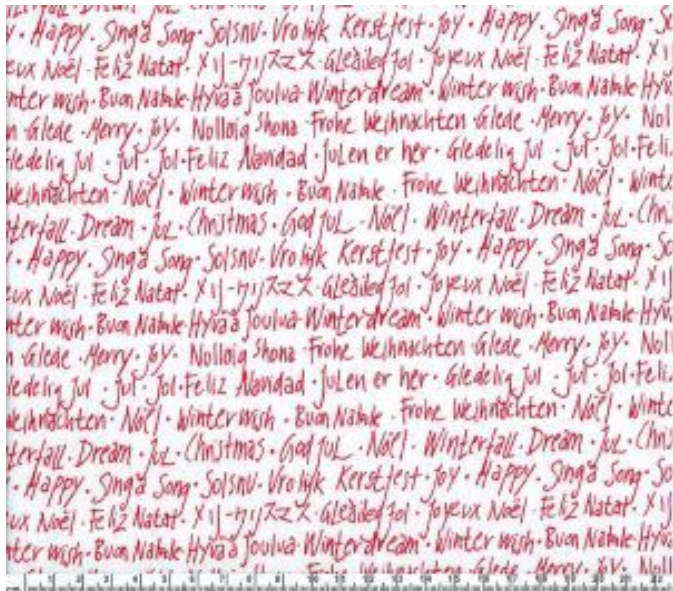 y · Happy · Sing a Song · Solsnu · Vrolijk Kerstfest · Joy · Happy · Sing a Song · So
eux Noël · Feliz Natat · メリークリスマス · Gledileg Jol · Joyeux Noël · Feliz Natat · メリ
nter wish · Buon Natale · Hyvää Joulua · Winterdream · Winter wish · Buon Natale · Hyvä
n Glede · Merry · Joy · Nollaig Shona · Frohe Weihnachten · Glede · Merry · Joy · Nol
ledelig Jul · Jul · Jol · Feliz Navidad · Julen er her · Gledelig Jul · Jul · Jol · Feli
Weihnachten · Noël · Winter wish · Buon Natale · Frohe Weihnachten · Noël · Winte
terfall · Dream · Jul · Christmas · God Jul · Noël · Winterfall · Dream · Jul · Chris
y · Happy · Sing a Song · Solsnu · Vrolijk Kerstfest · Joy · Happy · Sing a Song · So
eux Noël · Feliz Natat · メリークリスマス · Gledileg Jol · Joyeux Noël · Feliz Natat · メリ
nter wish · Buon Natale · Hyvää Joulua · Winterdream · Winter wish · Buon Natale · Hyvä
n Glede · Merry · Joy · Nollaig Shona · Frohe Weihnachten · Glede · Merry · Joy · Noll
ledelig Jul · Jul · Jol · Feliz Navidad · Julen er her · Gledelig Jul · Jul · Jol · Feli
Weihnachten · Noël · Winter wish · Buon Natale · Frohe Weihnachten · Noël · Winte
terfall · Dream · Jul · Christmas · God Jul · Noël · Winterfall · Dream · Jul · Chris
y · Happy · Sing a Song · Solsnu · Vrolijk Kerstfest · Joy · Happy · Sing a Song · So
eux Noël · Feliz Natat · メリークリスマス · Gledileg Jol · Joyeux Noël · Feliz Natat · メリ
nter wish · Buon Natale · Hyvää Joulua · Winterdream · Winter wish · Buon Natale · Hyvä